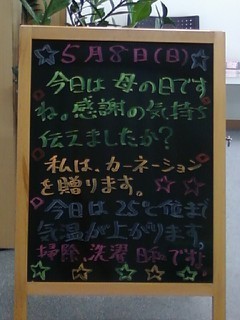 5月8日(日)
今日は 母の日です
ね。感謝の気持ち
伝えましたか?
私は、カーネーション
を贈ります。
今日は 25℃位まで
気温が上がります。
掃除、洗濯 日和です。